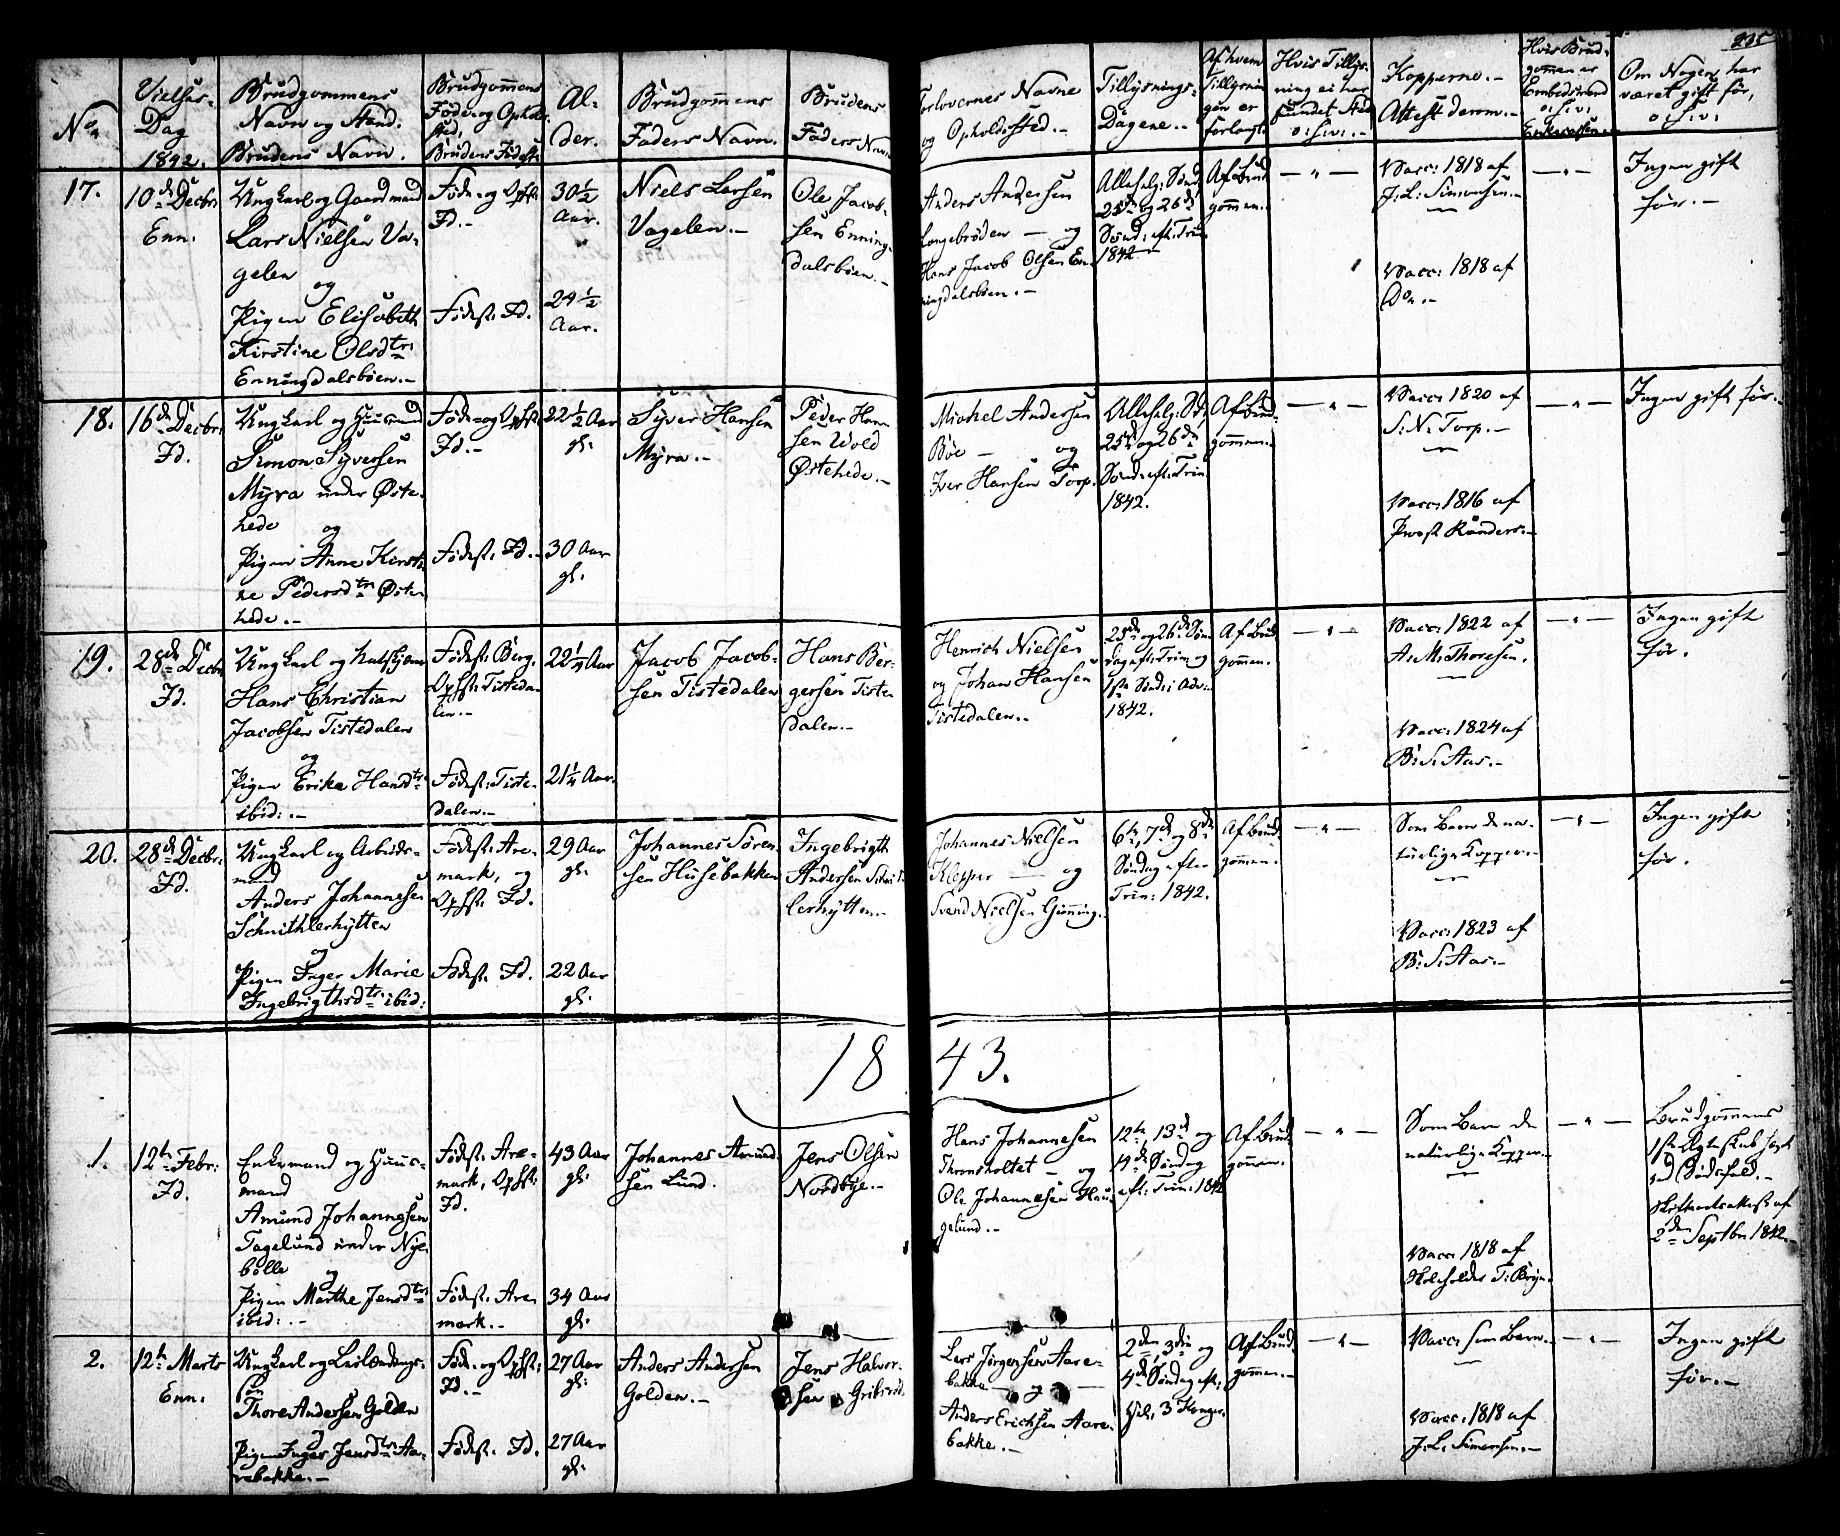 235
No.
Vielses-
Dag
1842.
Brudgommens
Navn og Stand.
Brudens Navn.
Brudgom̄ens
Føde- og Opholds
sted,
Brudens Fødest.
Al-
der.
Brudgom̄ens
Faders Navn.
Brudens
Faders Navn
Forlovernes Navne
og Opholdssted.-
Tillysnings-
Dagene.-
Af hvem
Tillysnin
gen er
forlangt.
Hvis Tillys-
ning ei har
fundet Sted
o: s: v:.-
Kopperne.-
Attest derom.-
Hvis Brud-
gommen er
Embedsmand
o: s: v:
Om Nogen har
været gift før,
o: s: v:
17.
10de Decbr:
Enn:
Ungkarl og Gaardmand
Lars Nielsen Va-
gelen
og
Pigen Elisabeth
Kirstine Olsdtr:
Enningdalsbøen.-
Føde- og Ophst:
Id.-
Fødest: Id.
30½
Aar.
24½
Aar.
Niels Larsen
Vagelen.-
Ole Jacob-
sen Enning-
dalsbøen.-
Anders Andersen
Langebrøden - og
Hans Jacob Olsen En-
ningdalsbøen.-
25de og 26de
Sønd: eft: Trin:
1842
Af Brud
gommen.
- " -
Vacc: 1818 af
J: L: Simonsen.-
Vacc: 1818 af
Do.-
- " -
Ingen gift
før.-
18.
16de Decbr:
Id.
Ungkarl og Huusmand
Simon Syversen
Myra under Øste-
hede
og
Pigen Anne Kirsti-
ne Pedersdtr: Øste-
hede.-
Føde- og Ophst:
Id.-
Fødest: Id.-
22½ Aar
gl:
30 Aar
gl:
Syver Hansen
Myra.-
Peder Han-
sen Wold
Østehede.-
Michel Andersen
Bøe - og
Iver Hansen Torp.
25de og 26de
Sønd: eft: Trin:
1842.
Af Brud-
gommen.
- " -
Vacc: 1820 af
S: N: Torp.-
Vacc: 1816 af
Provst Rånders.-
- " -
Ingen gift før.-
19.
28de Decbr
Id.
Ungkarl og
Hans Christian
Jacobsen Tistedalen
og
Pigen Erika Hansdtr:
ibid:.-
Fødest: Berg.
Ophst: Tisteda-
len.-
Fødest: Tiste-
dalen.-
22¼ Aar
21¼ Aar.
Jacob Jacob-
sen Tistedalen
Hans Bør-
gersen Tiste-
dalen.-
Henrich Nielsen
og Johan Hansen
Tistedalen.-
25de og 26de Søn
dag eft: Trin: og
1ste Sønd: i Adv:
1842.
Af Brud
gommen.
- " -
Vacc: 1822 af
A: M: Thoresen.
Vacc: 1824 af
B: S: Aas.-
- " -
Ingen gift
før.
20.
28de Decbr:
Id.
Ungkarl og Arbeids-
mand
Anders Johannesen
Schnitlerhytten
og
Pigen Inger Marie
Ingebrigthsdtr: ibid:
Fødest: Are-
mark, og
Ophst: Id.
Fødest: Id.
29 Aar
gl:
22 Aar
gl:
Johannes Sören-
sen Husebakken
Ingebrigth
Andersen Schnit-
lerhytten.-
Johannes Nielsen
Klepper - og
Svend Nielsen
6te, 7de og 8de
Søndag efter
Trin: 1842.
Af Brud-
gommen.
- " -
Som Barn de na-
turlige Kopper.-
Vacc: 1823 af
B: S: Aas.-
- " -
Ingen gift
før.
18 43.
1.
12te Febr:
Id.
Enkemand og Huus-
mand
Amund Johannesen
Tagelund under Nye-
bølle
og
Pigen Marthe Jensdtr:
ibid:.-
Fødest: Are-
mark, Ophst:
Id.
Fødest: Are-
mark.-
43 Aar
gl:
34 Aar
gl:
Johannes Amund-
sen Lund.
Jens Olsen
Nordbye.-
Hans Johannesen
Thronsholtet - og
Ole Johannesen Hau-
gelund.-
12te, 13de og
14de Søndag
eft: Trin: 1842
Af Brud-
gommen.
- " -
Som Barn de
naturlige Kopper.-
Vacc: 1818 af
- " -
Brudgommens
1ste Ægteskab
ved Dødsfald.-
Skifteattest af
2den Septbr: 1842.
2.
12te Marts
Enn:
Ungkarl og Leilændings-
søn
Thore Andersen Golden
og
Pigen Inger Jensdtr: Aa-
rebakke.-
Føde- og Ophst:
Id.-
Fødest: Id.
27 Aar
gl:
27 Aar
gl:
Anders Andersen
Golden.-
Jens Halvor-
sen
Lars Jørgensen Aare-
bakke - og -
Anders Ericksen Aare-
bakke.-
2den, 3die og
4de Søndag eft:
Hel: 3 Konger.
Af Brud-
gommen.-
- " -
Vacc: som Barn.-
Vacc: 1818 af
J: L: Simonsen.-
- " -
Ingen gift
før.-